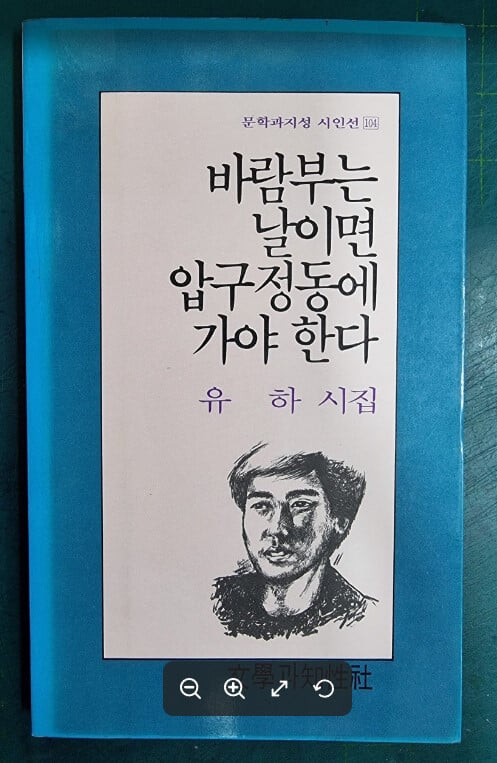 문학과지성 시인선 104
바람부는
날이면
압구정동에
가야 한다
유 하 시집
文學과知性社